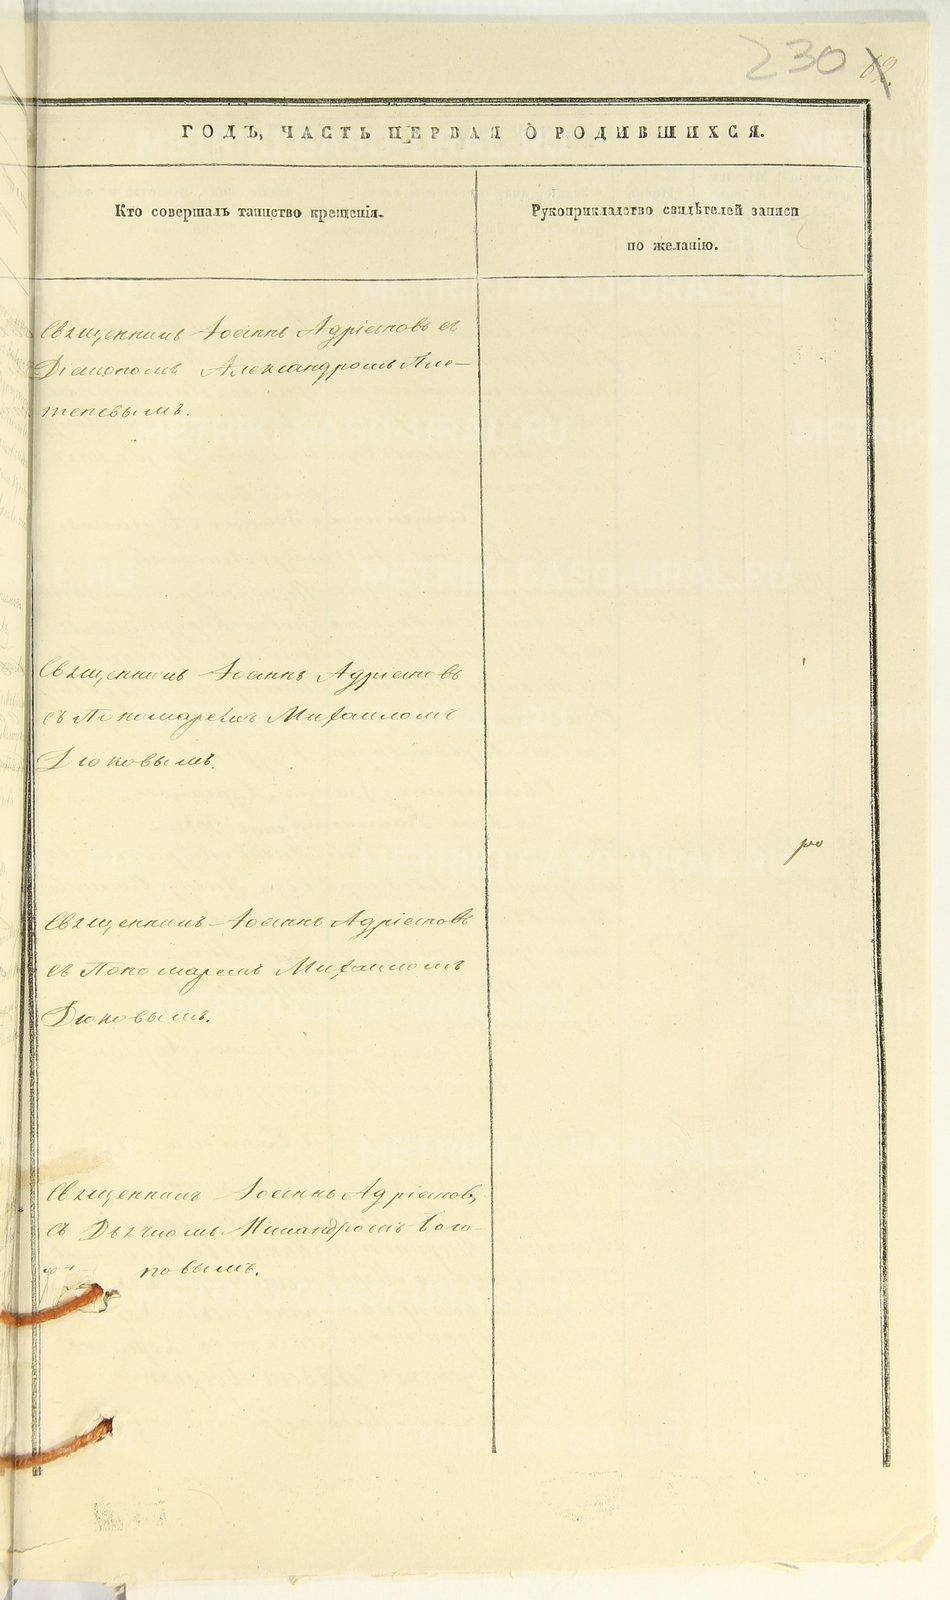 230
ГОДЪ, ЧАСТЬ ПЕРВАЯ О РОДИВШИХСЯ.
Кто совершалъ таинство крещенія.
Рукоприкладство свидѣтелей записи
по желанію.
Священникъ Іоаннъ Адріановъ съ
Діакономъ Александромъ Пле-
теневымъ.
Священникъ Іоаннъ Адріановъ
съ Пономаремъ Михаиломъ
Дюковымъ.
Священникъ Іоаннъ Адріановъ
съ Пономаремъ Михаиломъ
Дюковымъ.
Священникъ Іоаннъ Адріановъ
съ Дьячкомъ Никандромъ
повымъ.
METRIKI.GASO-URAL.RU